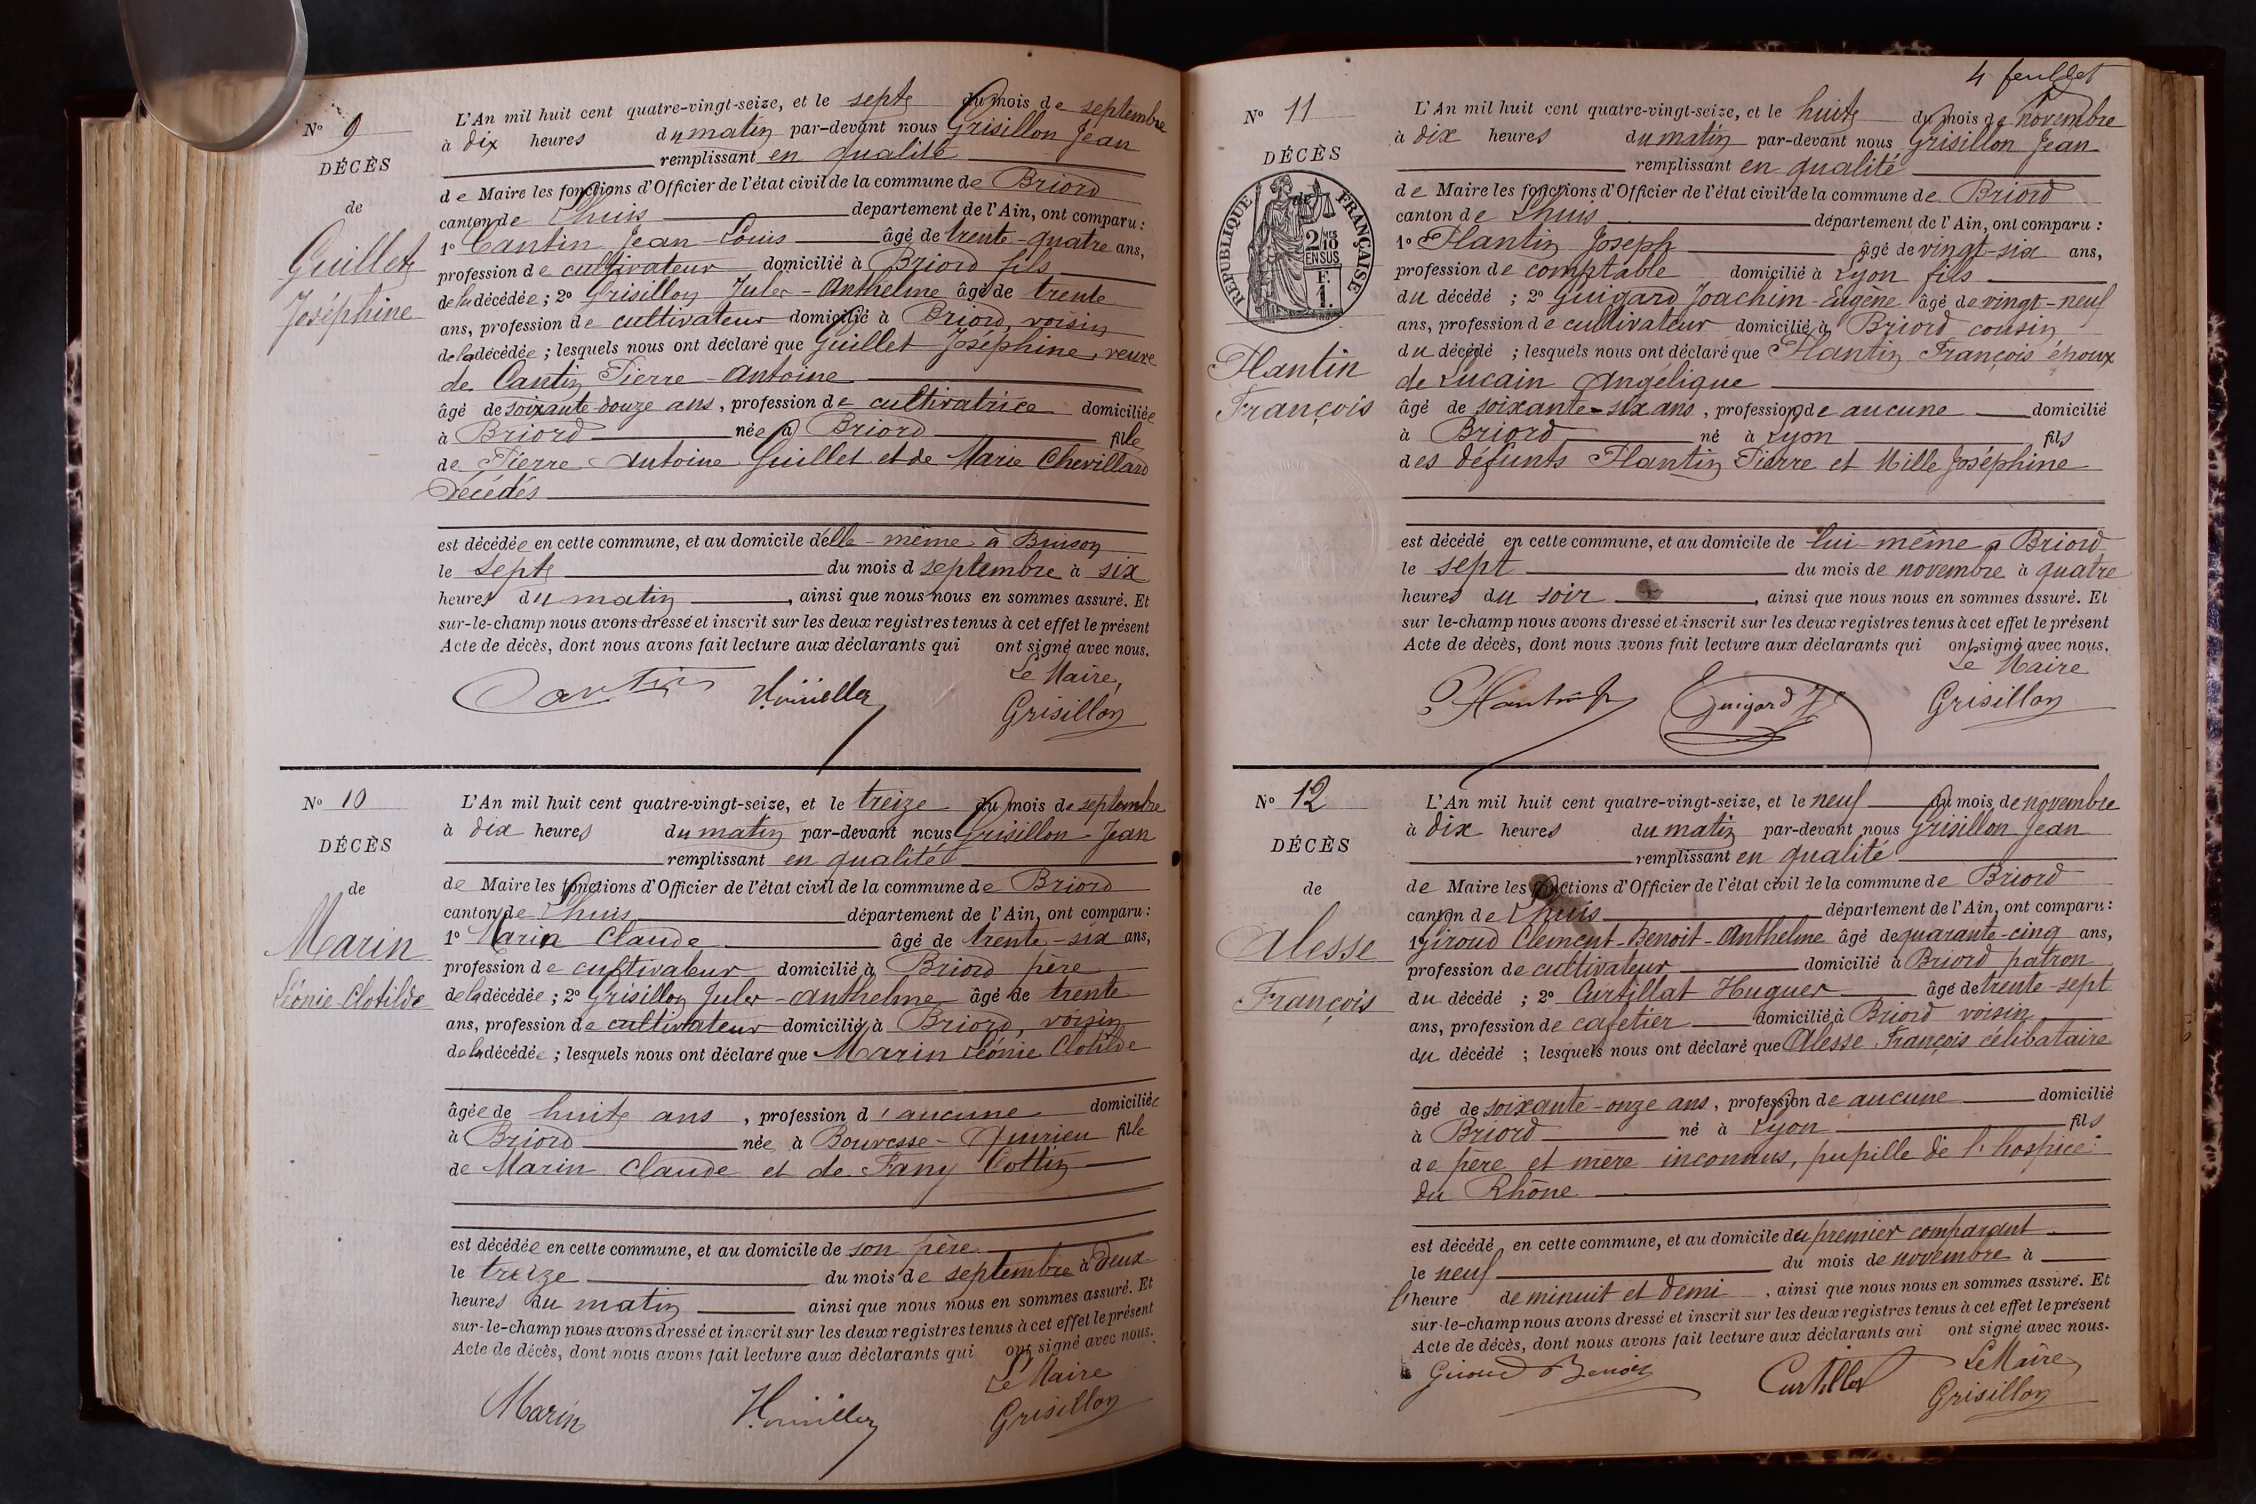 Nº 9
DÉCÈS
de
Guillet
Joséphine
L'An mil huit cent quatre-vingt-seize, et le sept du mois de septembre
à dix heures du matin par-devant nous Grisillon Jean
remplissant en qualité
de Maire les fonctions d'Officier de l'état civil de la commune de Briord
canton de Lhuis département de l'Ain, ont comparu :
1º Cantin Jean-Louis âgé de trente-quatre ans,
profession de cultivateur domicilié à Briord fils
de la décédée ; 2º Grisillon Jules-Anthelme âgé de trente
ans, profession de cultivateur domicilié à Briord, voisin
de la décédée ; lesquels nous ont déclaré que Guillet Joséphine, veuve
de Cantin Pierre-Antoine
âgé de soixante douze ans, profession de cultivatrice domiciliée
à Briord née à Briord fille
de Pierre Antoine Guillet et de Marie Chevillard
décédés
est décédée en cette commune, et au domicile d'elle-même à
le sept du mois d septembre à six
heures du matin, ainsi que nous nous en sommes assuré. Et
sur-le-champ nous avons dressé et inscrit sur les deux registres tenus à cet effet le présent
Acte de décès, dont nous avons fait lecture aux déclarants qui ont signé avec nous.
Le Maire,
Cantin Grisillon
Nº 10
DÉCÈS
de
Marin
Léonie Clotilde
L'An mil huit cent quatre-vingt-seize, et le treize du mois de septembre
à dix heures du matin par-devant nous Grisillon Jean
remplissant en qualité
de Maire les fonctions d'Officier de l'état civil de la commune de Briord
canton de Lhuis département de l'Ain, ont comparu :
1º Marin Claude âgé de trente-six ans,
profession de cultivateur domicilié à Briord père
de la décédée ; 2º Grisillon Jules-Anthelme âgé de trente
ans, profession de cultivateur domicilié à Briord, voisin
de la décédée ; lesquels nous ont déclaré que Marin Léonie Clotilde
âgée de huit ans, profession d'aucune domiciliée
à Briord née à Bouvesse-Quirieu fille
de Marin Claude et de Fany Cottin
est décédée en cette commune, et au domicile de son père
le treize du mois de septembre à deux
heures du matin ainsi que nous nous en sommes assuré. Et
sur-le-champ nous avons dressé et inscrit sur les deux registres tenus à cet effet le présent
Acte de décès, dont nous avons fait lecture aux déclarants qui ont signé avec nous.
Le Maire
Marin Grisillon
4 feuillet
Nº 11
DÉCÈS
de
RÉPUBLIQUE FRANÇAISE
2 MES
10
EN SUS
F.
1.
Plantin
François
L'An mil huit cent quatre-vingt-seize, et le huit du mois de novembre
à dix heures du matin par-devant nous Grisillon Jean
remplissant en qualité
de Maire les fonctions d'Officier de l'état civil de la commune de Briord
canton de Lhuis département de l'Ain, ont comparu :
1º Plantin Joseph âgé de vingt-six ans,
profession de comptable domicilié à Lyon fils
du décédé ; 2º Guigard Joachim-Eugène âgé de vingt-neuf
ans, profession de cultivateur domicilié à Briord cousin
du décédé ; lesquels nous ont déclaré que Plantin François époux
de Lucain Angélique
âgé de soixante-six ans, profession de aucune domicilié
à Briord né à Lyon fils
des défunts Plantin Pierre et Mille Joséphine
est décédé en cette commune, et au domicile de lui même a Briord
le sept du mois de novembre à quatre
heures du soir, ainsi que nous nous en sommes assuré. Et
sur le-champ nous avons dressé et inscrit sur les deux registres tenus à cet effet le présent
Acte de décès, dont nous avons fait lecture aux déclarants qui ont signé avec nous.
Le Maire
Plantin Guigard Grisillon
Nº 12
DÉCÈS
de
Alesse
François
L'An mil huit cent quatre-vingt-seize, et le neuf du mois de novembre
à dix heures du matin par-devant nous Grisillon Jean
remplissant en qualité
de Maire les fonctions d'Officier de l'état civil de la commune de Briord
canton de Lhuis département de l'Ain, ont comparu :
1º Giroud Clément-Benoit-Anthelme âgé de quarante-cinq ans,
profession de cultivateur domicilié à Briord patron
du décédé ; 2º Curtillat Hugues âgé de trente-sept
ans, profession de cafetier domicilié à Briord voisin
du décédé ; lesquels nous ont déclaré que Alesse François célibataire
âgé de soixante-onze ans, profession de aucune domicilié
à Briord né à Lyon fils
de père et mère inconnus, pupille de l'hospice
du Rhône
est décédé en cette commune, et au domicile du premier comparant
le neuf du mois de novembre à
l'heure de minuit et demi, ainsi que nous nous en sommes assuré. Et
sur-le-champ nous avons dressé et inscrit sur les deux registres tenus à cet effet le présent
Acte de décès, dont nous avons fait lecture aux déclarants qui ont signé avec nous.
Le Maire
Giroud Benoit Curtillat Grisillon